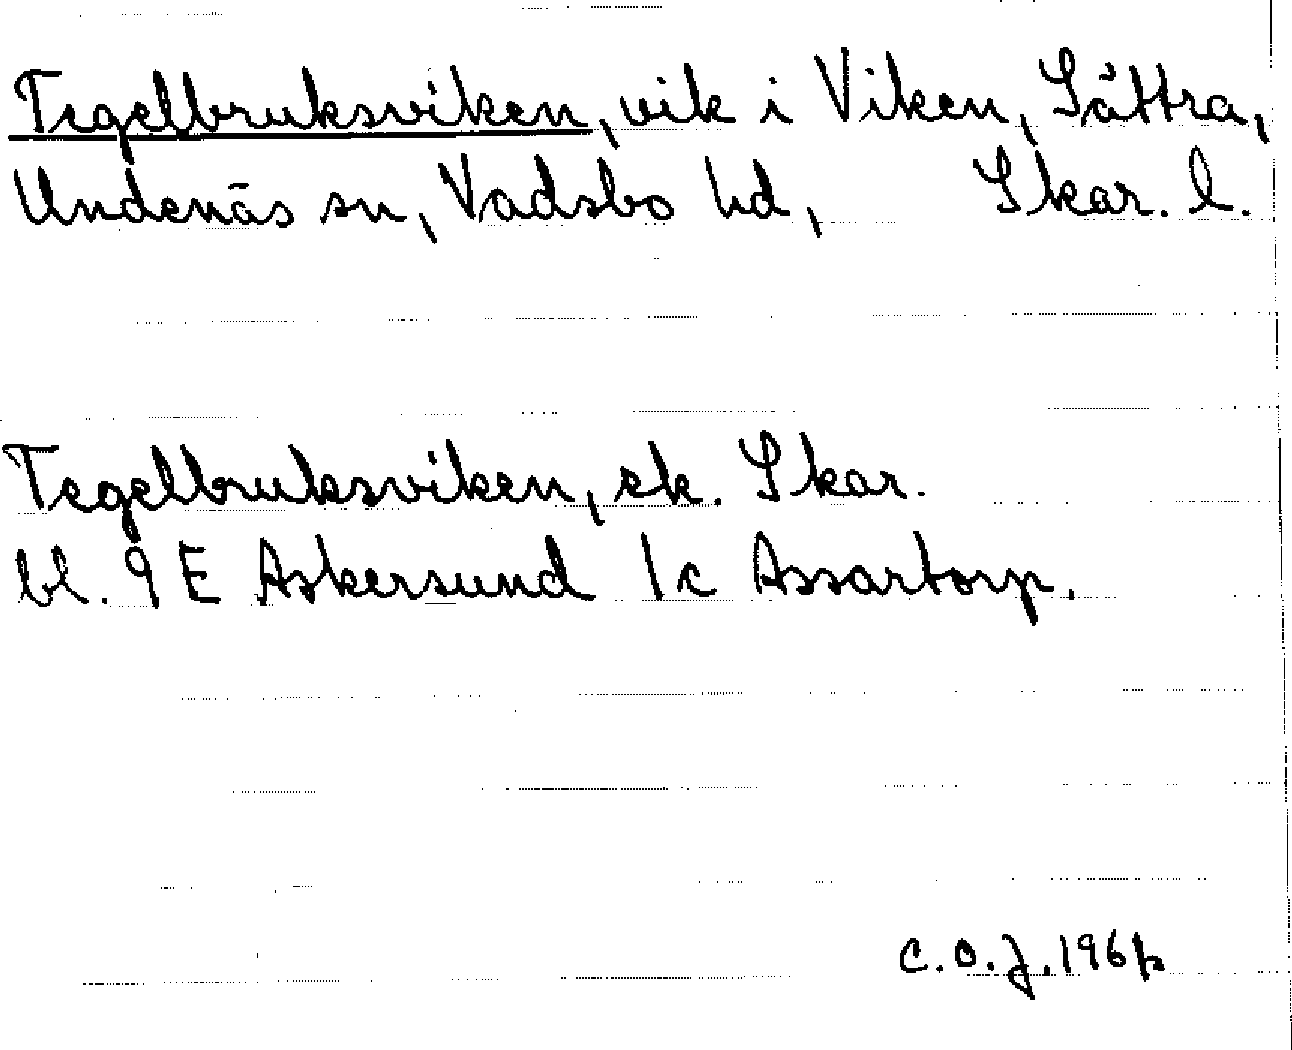 Tegelbruksviken, vik i Viken, Sättra,
Undenäs sn, Vadsbo hd, Skar. l.
Tegelbruksviken, ek. Skar.
bl. 9 E Askersund 1c Assartorp.
C.O.J.